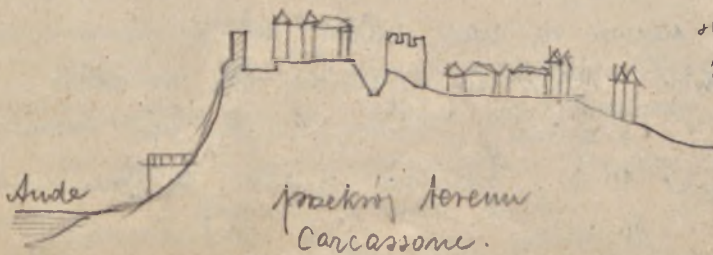 Aude
przekrój terenu
Carcassone.